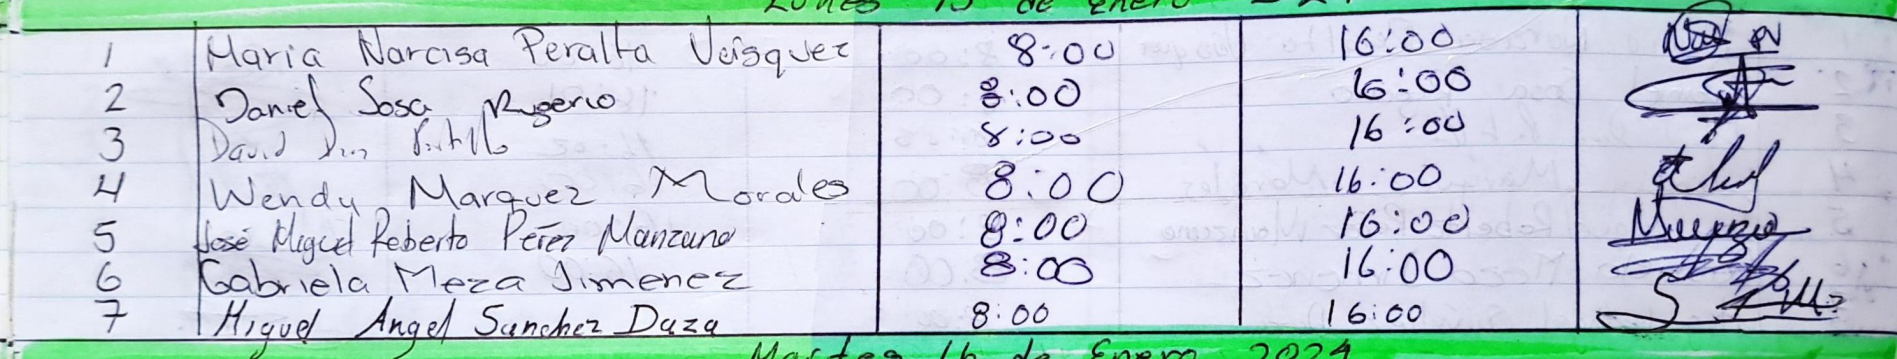 Lunes 15 de Enero 2024
1 Maria Narcisa Peralta Vásquez 8:00 16:00
2 Daniel Sosa Rugerio 8:00 16:00
3 David 8:00 16:00
4 Wendy Marquez Morales 8:00 16:00
5 José Miguel Roberto Pérez Manzano 8:00 16:00
6 Gabriela Meza Jimenez 8:00 16:00
7 Miguel Angel Sanchez Daza 8:00 16:00
Martes 16 de Enero 2024